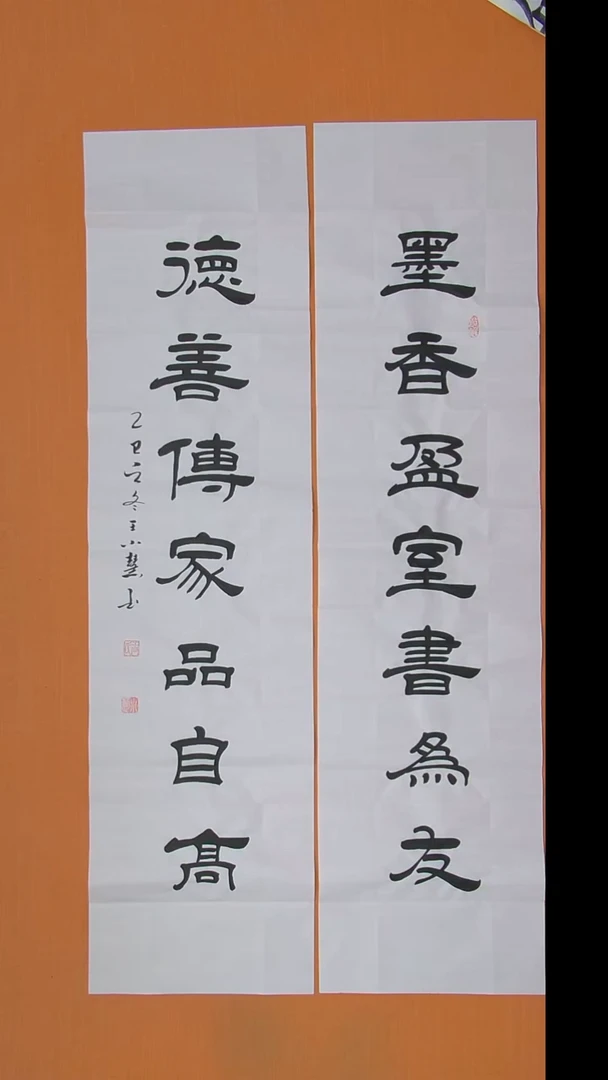 墨香盈室書為友
德善傳家品自高
乙巳之冬王小慧書